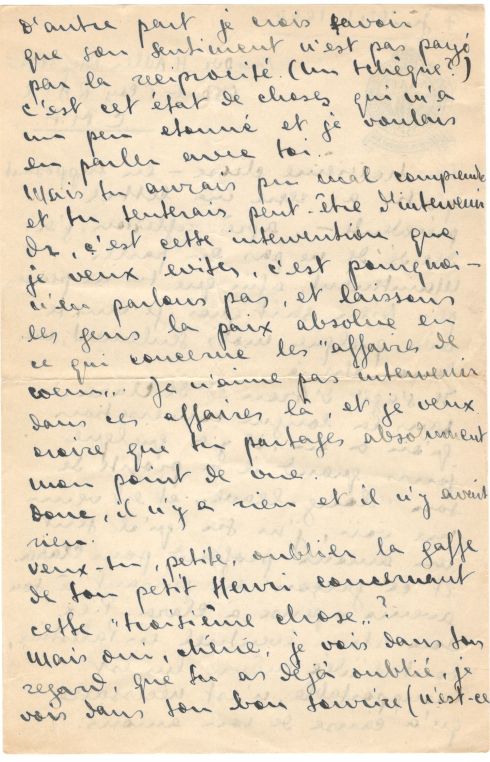 D'autre part je crois savoir
que son sentiment n'est pas payé
par la reciprocité. (Un tchèque?)
c'est cet état de choses qui m'a
un peu etonné et je voulais
en parler avec toi.
Mais tu aurais pu mal comprendre
et tu tenterais peut-être d'intervenir
Or, c'est cette intervention que
je veux eviter, c'est pourquoi –
n'en parlons pas, et laissons
les gens la paix absolue en
ce qui concerne les "affaires de
coeur„. Je n'aime pas intervenir
dans ces affaires là, et je veux
croire que tu partages absolument
mon point de vue.
Donc, il n'y a rien et il n'y avait
rien.
Veux-tu, petite, oublier la gaffe
de ton petit Henri concernant
cette "troisième chose„?
Mais oui, cherie, je vois dans ton
regard que tu as déjà oublié, je
vois dans ton bon sourire (n'est-ce